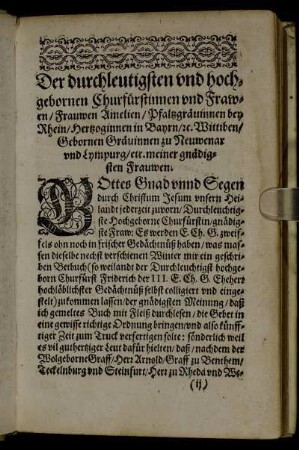 Der durchleutigsten vnd hoch-
gebornen Churfürstinnen vnd Fraw-
en/ Frauwen Amelien/ Pfaltzgräuinnen bey
Rhein/ Hertzoginnen in Bayrn/ꝛc. Wittiben/
Gebornen Gräuinnen zu Neuwenar
vnd Lympurg/ etc. meiner gnädig-
sten Frauwen.
GOttes Gnad vnnd Segen
durch Christum Jesum vnsern Hei-
land jederzeit zuvorn/ Durchleuchtig-
ste Hochgeborne Churfürstin, gnädig-
ste Fraw: Es werden E. Ch. G. zweif-
fels ohn noch in frischer Gedächtnüß haben/ was mas-
sen dieselbe nechst verschienen Winter mir ein geschri-
ben Betbuch (so weilande der Durchleuchtigst hochge-
born Churfürst Friderich der III. E. Ch. G. Eheherr
hochlöblichster Gedächtnüß selbst colligirt vnd einge-
stelt) zukommen lassen/ der gnädigsten Meinung/ daß
ich gemeltes Buch mit Fleiß durchlesen/ die Gebet in
eine gewisse richtige Ordnung bringen/ vnd also künff-
tiger Zeit zum Truck verfertigen solte: sönderlich weil
es vil guthertziger Leut dafür hielten/ daß/ nachdem der
Wolgeborne Graff/ Herr Arnold/ Graff zu Benthem/
Tecklnburg vnd Steinfurt/ Herr zu Rheda vnd We-
(ij)